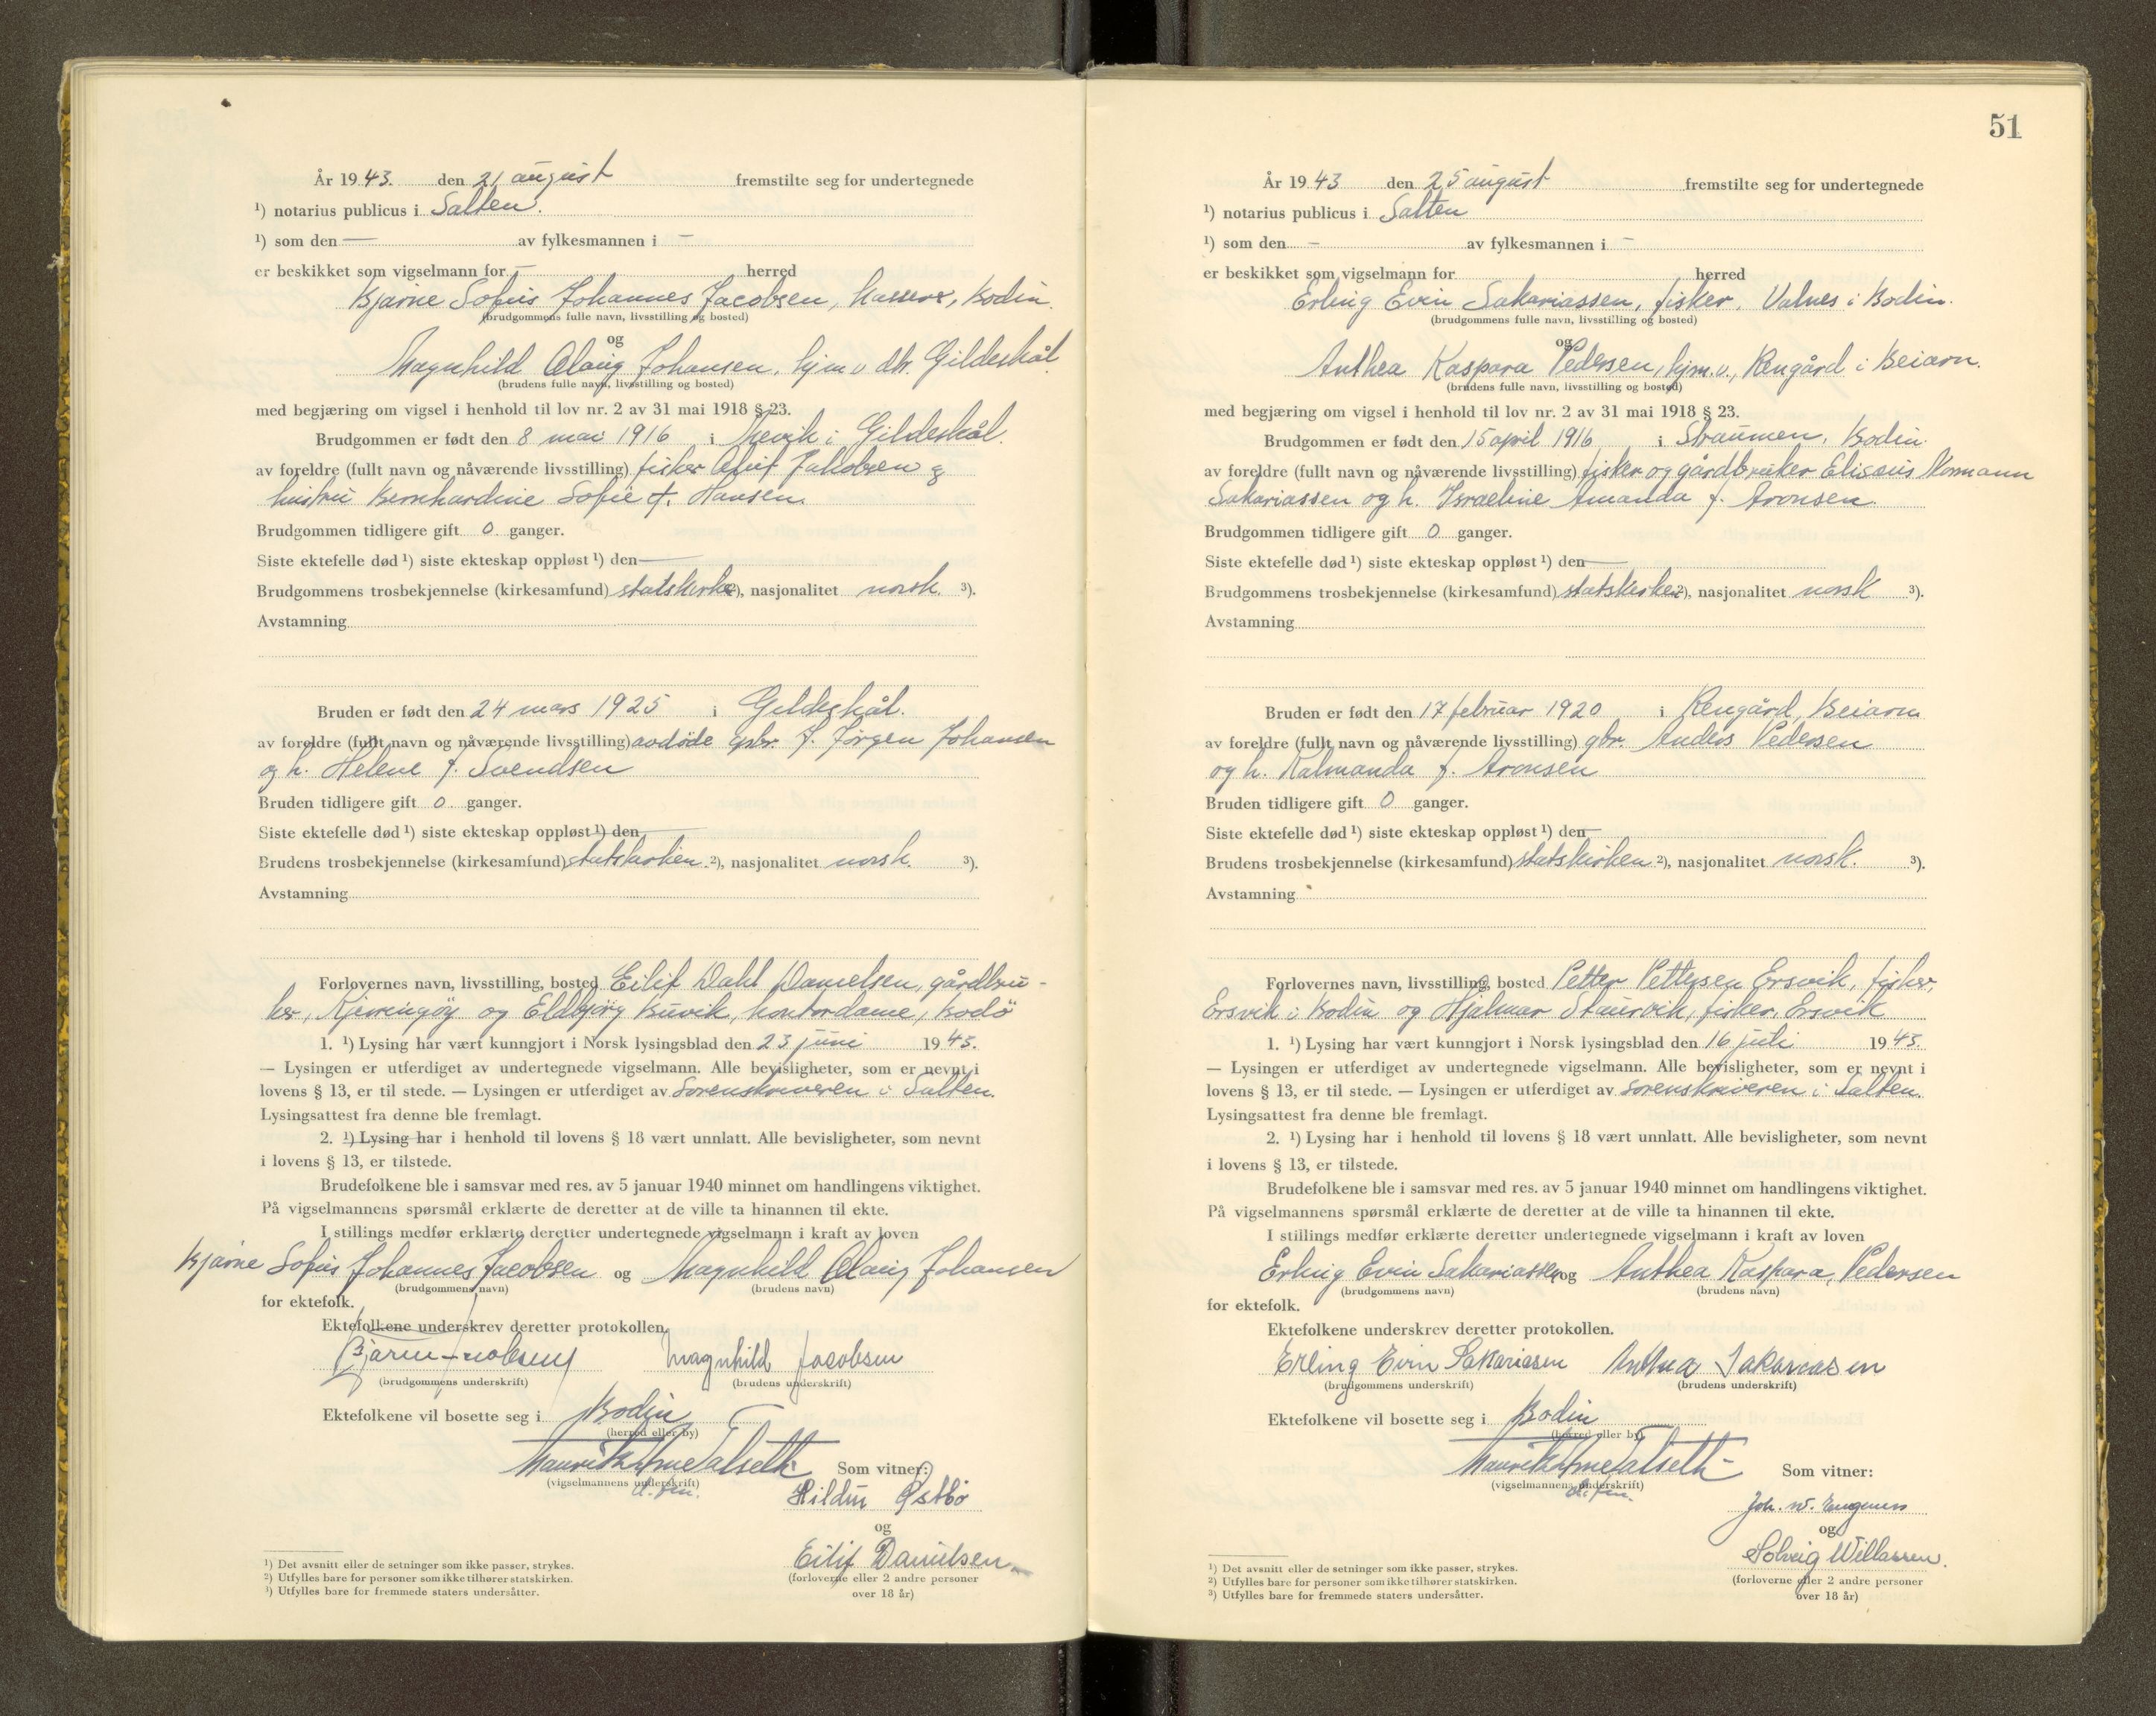 År 1943. den 21 august fremstilte seg for undertegnede
¹) notarius publicus i Salten.
¹) som den — av fylkesmannen i –
er beskikket som vigselmann for – herred
Bjarne Sofus Johannes Jacobsen, kasserer, Bodin.
(brudgommens fulle navn, livsstilling og bosted)
og
Magnhild Olaug Johansen, hjm v. dtr. Gildeskål
(brudens fulle navn, livsstilling og bosted)
med begjæring om vigsel i henhold til lov nr. 2 av 31 mai 1918 § 23.
Brudgommen er født den 8 mai 1916 i Mevik i Gildeskål.
av foreldre (fullt navn og nåværende livsstilling) fisker Jakobsen &
hustru Bernhardine Sofie f. Hansen.
Brudgommen tidligere gift 0 ganger.
Siste ektefelle død ¹) siste ekteskap oppløst ¹) den —
Brudgommens trosbekjennelse (kirkesamfund) statskirke ²), nasjonalitet norsk. ³).
Avstamning
Bruden er født den 24 mars 1925 i Gildeskål.
av foreldre (fullt navn og nåværende livsstilling) avdøde gbr. J. Jørgen Johansen
og h. Helene f. Svendsen
Bruden tidligere gift 0 ganger.
Siste ektefelle død ¹) siste ekteskap oppløst ¹) den —
Brudens trosbekjennelse (kirkesamfund) statskirken. ²), nasjonalitet norsk. ³).
Avstamning
Forlovernes navn, livsstilling, bosted Eilif Dahl Danielsen, gårdbru-
ker, Kjerringøy og Eldbjørg Buvik, kontordame, Bodø
1. ¹) Lysing har vært kunngjort i Norsk lysingsblad den 23 juni 1943.
— Lysingen er utferdiget av undertegnede vigselmann. Alle bevisligheter, som er nevnt i
lovens § 13, er til stede. — Lysingen er utferdiget av Sorenskriveren i Salten.
Lysingsattest fra denne ble fremlagt.
2. ¹) Lysing har i henhold til lovens § 18 vært unnlatt. Alle bevisligheter, som nevnt
i lovens § 13, er tilstede.
Brudefolkene ble i samsvar med res. av 5 januar 1940 minnet om handlingens viktighet.
På vigselmannens spørsmål erklærte de deretter at de ville ta hinannen til ekte.
I stillings medfør erklærte deretter undertegnede vigselmann i kraft av loven
Bjarne Sofus Johannes Jacobsen og Magnhild Olaug Johansen
(brudgommens navn) (brudens navn)
for ektefolk.
Ektefolkene underskrev deretter protokollen.
Bjarne Jacobsen Magnhild Jacobsen
(brudgommens underskrift) (brudens underskrift)
Ektefolkene vil bosette seg i Bodin
(herred eller by)
(vigselmannens underskrift) Som vitner:
Hildur Østbø
og
Eilif Danielsen
(forloverne eller 2 andre personer
over 18 år)
¹) Det avsnitt eller de setninger som ikke passer, strykes.
²) Utfylles bare for personer som ikke tilhører statskirken.
³) Utfylles bare for fremmede staters undersåtter.
51
År 1943 den 25 august fremstilte seg for undertegnede
¹) notarius publicus i Salten
¹) som den – av fylkesmannen i –
er beskikket som vigselmann for herred
Erling Evin Sakariassen, fisker, Valnes i Bodin.
(brudgommens fulle navn, livsstilling og bosted)
og
Anthea Kaspara Pedersen, hjm.v., Rengård i Beiarn.
(brudens fulle navn, livsstilling og bosted)
med begjæring om vigsel i henhold til lov nr. 2 av 31 mai 1918 § 23.
Brudgommen er født den 15 april 1916 i Straumen, Bodin.
av foreldre (fullt navn og nåværende livsstilling) fisker og gårdbruker Elisæus Normann
Sakariassen og h. Israeline Amanda f. Aronsen.
Brudgommen tidligere gift 0 ganger.
Siste ektefelle død ¹) siste ekteskap oppløst ¹) den —
Brudgommens trosbekjennelse (kirkesamfund) statskirken ²), nasjonalitet norsk ³).
Avstamning
Bruden er født den 17 februar 1920 i Rengård, Beiarn
av foreldre (fullt navn og nåværende livsstilling) gbr. Anders Pedersen
og h. Kalmanda f. Aronsen
Bruden tidligere gift 0 ganger.
Siste ektefelle død ¹) siste ekteskap oppløst ¹) den —
Brudens trosbekjennelse (kirkesamfund) statskirken ²), nasjonalitet norsk. ³).
Avstamning
Forlovernes navn, livsstilling, bosted Petter Pettersen Ersvik, fisker,
Ersvik i Bodin og Hjalmar Staurvik, fisker, Ersvik
1. ¹) Lysing har vært kunngjort i Norsk lysingsblad den 16 juli 1943.
— Lysingen er utferdiget av undertegnede vigselmann. Alle bevisligheter, som er nevnt i
lovens § 13, er til stede. — Lysingen er utferdiget av sorenskriveren i Salten.
Lysingsattest fra denne ble fremlagt.
2. ¹) Lysing har i henhold til lovens § 18 vært unnlatt. Alle bevisligheter, som nevnt
i lovens § 13, er tilstede.
Brudefolkene ble i samsvar med res. av 5 januar 1940 minnet om handlingens viktighet.
På vigselmannens spørsmål erklærte de deretter at de ville ta hinannen til ekte.
I stillings medfør erklærte deretter undertegnede vigselmann i kraft av loven
Erling Evin Sakariassen og Anthea Kaspara Pedersen
(brudgommens navn) (brudens navn)
for ektefolk.
Ektefolkene underskrev deretter protokollen.
Erling Evin Sakariasen Anthea Sakariasen
(brudgommens underskrift) (brudens underskrift)
Ektefolkene vil bosette seg i Bodin
(herred eller by)
(vigselmannens underskrift) Som vitner:
Joh. W.
og
Solveig Willassen.
(forloverne eller 2 andre personer
over 18 år)
¹) Det avsnitt eller de setninger som ikke passer, strykes.
²) Utfylles bare for personer som ikke tilhører statskirken.
³) Utfylles bare for fremmede staters undersåtter.